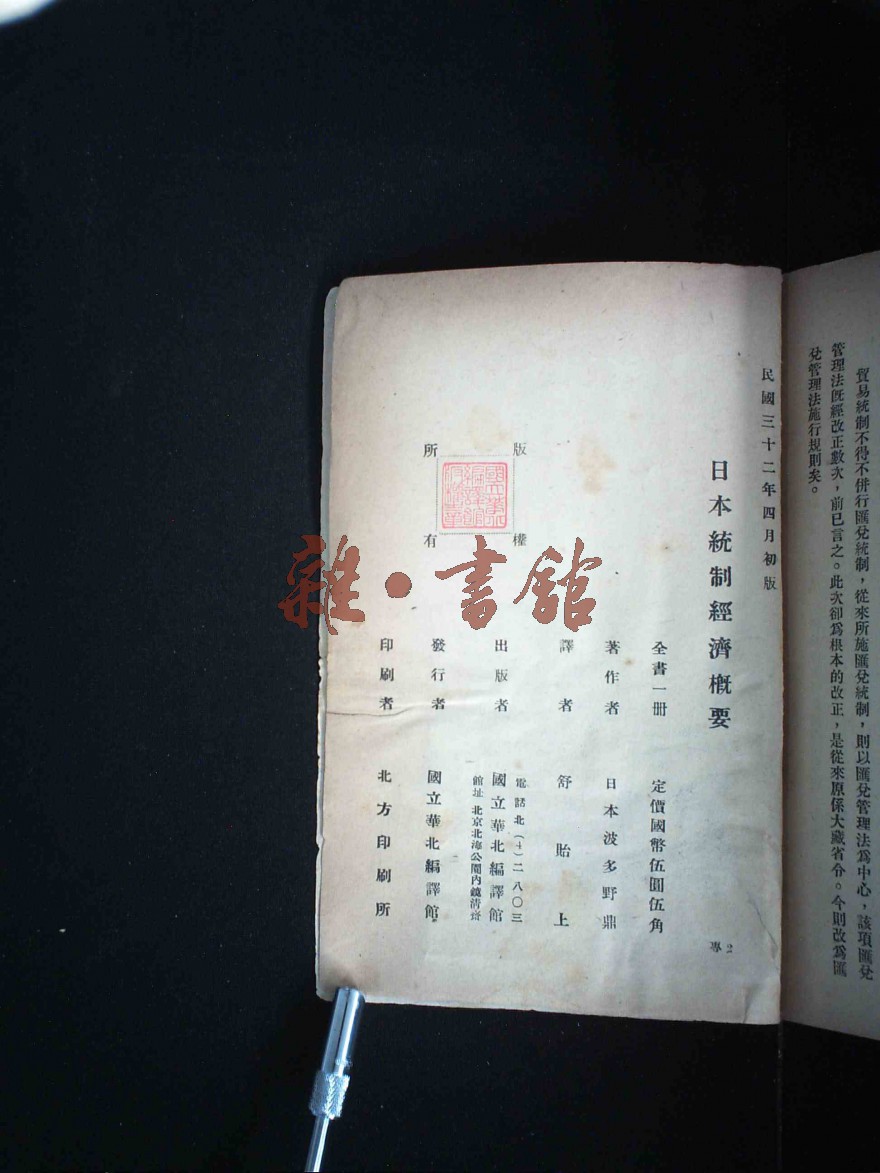 貿易統制不得不併行匯兌統制，從來所施匯兌統制，則以匯兌管理法爲中心，該項匯兌
管理法旣經改正數次，前已言之。此次卻爲根本的改正，是從來原係大藏省令。今則改爲匯
兌管理法施行規則矣。
民國三十二年四月初版
日本統制經濟概要
專2
全書一册 定價國幣伍圓伍角
著作者 日本波多野鼎
譯者 舒貽上
出版者 國立華北編譯館
電話北（4）二八〇三
館址 北京北海公園內鏡清齋
發行者 國立華北編譯館
印刷者 北方印刷所
版權所有
雜·書館